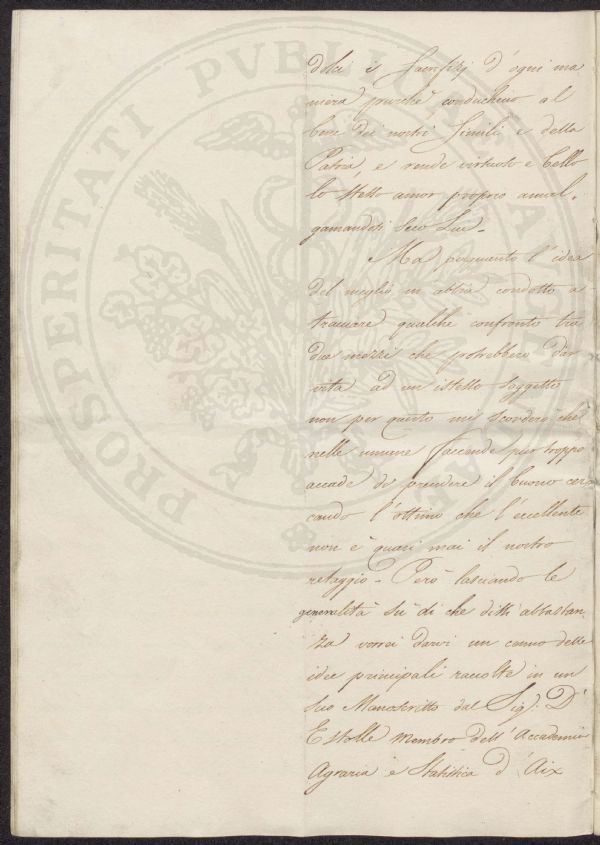 PROSPERITATI PVBLICAE AVGENDAE
dolci i Sacrifizj d'ogni ma
niera purchè conduchino al
bene dei nostri Simili e della
Patria, e rende virtuoso e bello
lo stesso amor proprio amal,
gamandosi seco Lui.
Ma persuento l'idea
del meglio m abbia condotto a
tracciare qualche confronto tra
due mezzi che potrebbero dar
vita ad un istesso soggetto
non per questo mi scorderò che
nelle umane faccende pur troppo
accade di perdere il buono cer
cando l'ottimo che l'eccellente
non è quasi mai il nostro
retaggio. Però lasciando le
generalità su di che dissi abbastan
za vorrei darvi un cenno delle
idee principali raccolte in un
suo Manoscritto dal Sig.r D'
Estolle Membro dell'Accademia
Agraria e Statistica d'Aix